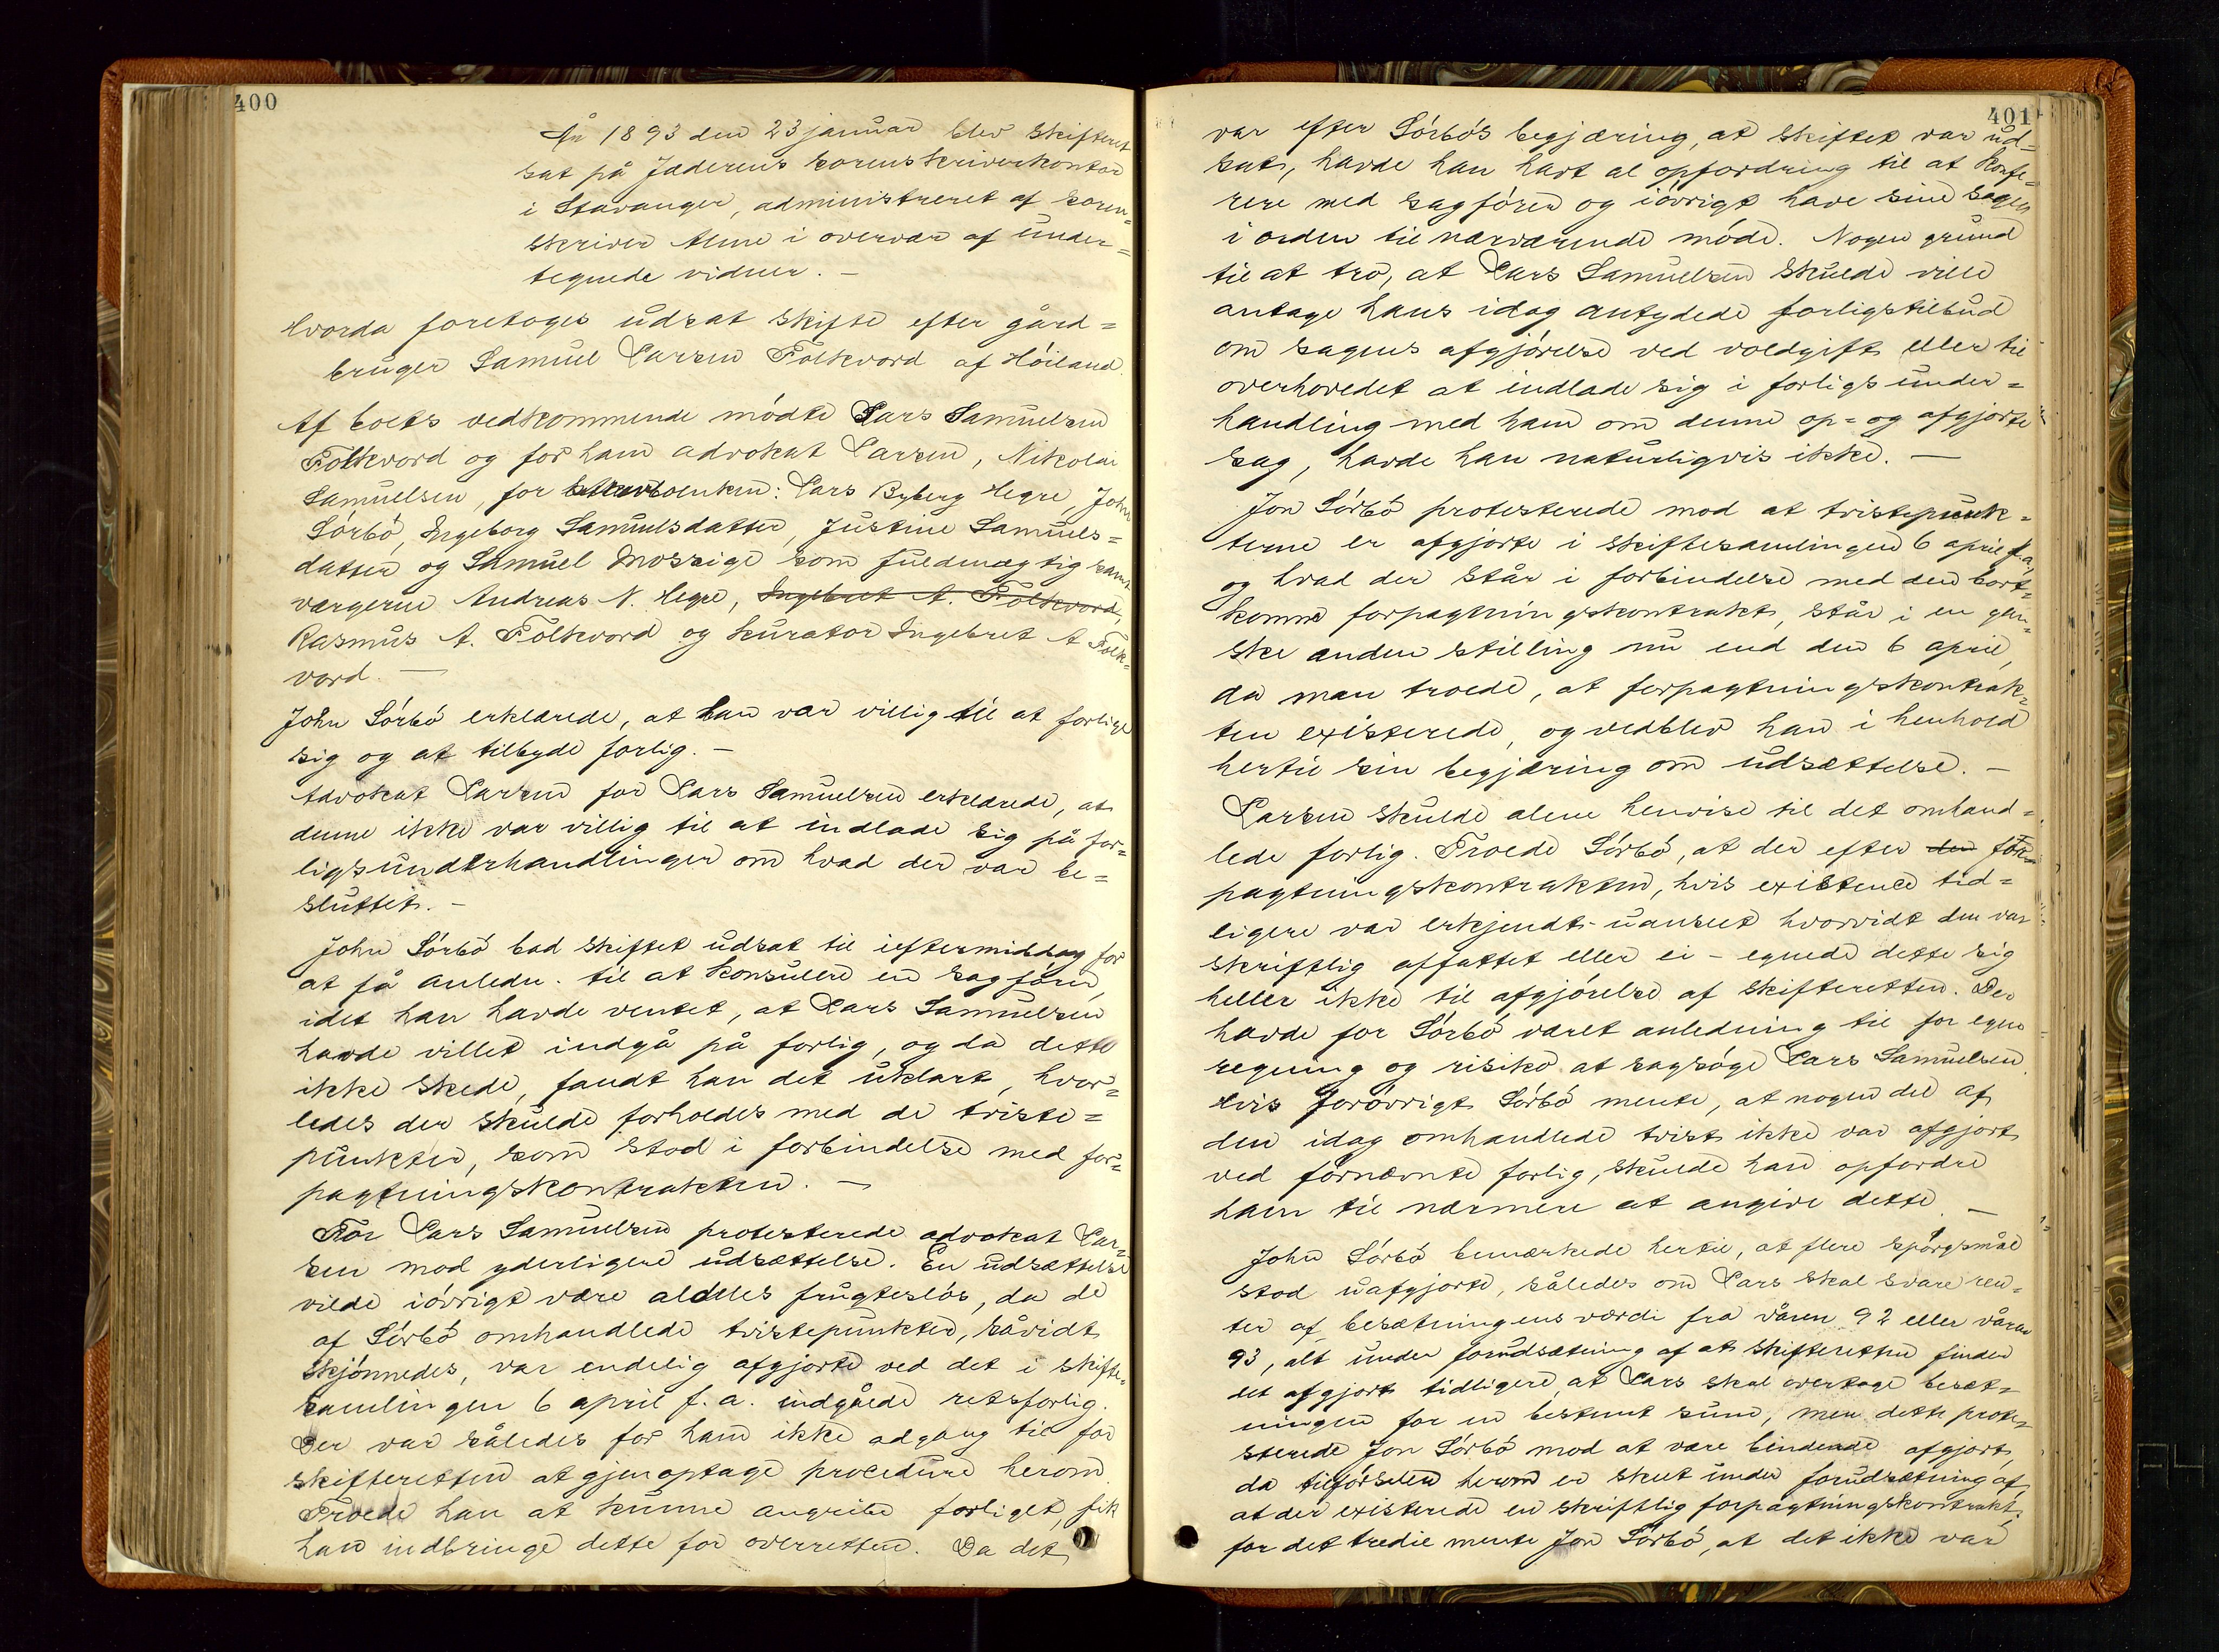 400
År 1893 den 23 januar blev skifteret
sat på Jæderens sorenskriverkontor
i Stavanger, administreret af soren=
skriver Alme i overvær af under=
tegnede vidner. –
Hvorda foretoges udsat skifte efter gård=
bruger Samuel Larsen Folkvord af Höiland.
Af boets vedkommende mödte Lars Samuelsen
Folkvord og for ham advokat Larsen, Nikolai
Samuelsen, for Lars Byberg Hegre, John
Sörbö, Ingeborg Samuelsdatter, Justine Samuels=
datter og Samuel Mossige som fuldmægtig samt
værgerne Andreas N. Hegre, Ingebret A. Folkvord,
Rasmus A. Folkvord og kurator Ingebret A Folk=
vord. –
John Sörbö erklærede, at han var villig til at forlige
sig og at tilbyde forlig. –
Advokat Larsen for Lars Samuelsen erklærede, at
denne ikke var villig til at indlade sig på for=
ligsunderhandlinger om hvad der var be=
sluttet. –
John Sörbö bad skiftet udsat til ieftermiddag for
at få anledn. til at konsulere en sagförer,
idet han havde ventet, at Lars Samuelsen
havde villet indgå på forlig, og da dette
ikke skede, fandt han det uklart, hvor=
ledes der skulde forholdes med de triste=
punkter, som stod i forbindelse med for=
pagtningskontrakten. –
For Lars Samuelsen protesterede advokat Lar=
sen mod yderligere udsættelse. En udsættelse
vilde iövrigt være aldeles frugteslös, da de
af Sörbö omhandlede tvistepunkter, såvidt
skjönnedes, var endelig afgjorte ved det i skifte=
samlingen 6 april f. a. indgåede retsforlig.
Der var således for ham ikke adgang til for
skifteretten at gjenoptage procedure herom.
Troede han at kunne angribe forliget, fik
han indbringe dette for overretten. Da det
401
var efter Sörbös begjæring, at skiftet var ud=
sat, havde han havt al opfordring til at konfe=
rere med sagförer og iövrigt have sine sager
i orden til nærværende möde. Nogen grund
til at tro, at Lars Samuelsen skulde ville
antage hans idag antydede forligstilbud
om sagens afgjörelse ved voldgift eller til
overhovedet at indlade sig i forligsunder=
handling med ham om denne op= og afgjorte
sag, havde han naturligvis ikke. –
Jon Sörbö protesterede mod at tvistepunk=
terne er afgjorte i skiftesamlingen 6 april f. a,
og hvad der står i forbindelse med den bort=
komne forpagtningskontrakt, står i en gan=
ske anden stilling nu end den 6 april,
da man troede, at forpagtningskontrak=
ten existerede, og vedblev han i henhold
hertil sin begjæring om udsættelse. –
Larsen skulde alene henvise til det omhand=
lede forlig. Troede Sörbö, at der efter den for=
pagtningskontrakten, hvis existence tid=
ligere var erkjendt – uanseet hvorvidt den var
skriftlig affattet eller ei – egnede dette sig
heller ikke til afgjörelse af skifteretten. Der
havde for Sörbö været anledning til for egen
regning og risiko at sagsöge Lars Samuelsen.
Hvis forövrigt Sörbö mente, at nogen del af
den idag omhandlede tvist ikke var afgjort
ved fornævnte forlig, skulde han opfordre
ham til nærmere at angive dette. –
John Sörbö bemærkede hertil, at flere spörgsmål
stod uafgjorte, således om Lars skal svare ren=
ter af besætningens værdi fra våren 92 eller våren
93, alt under forudsætning af at skifteretten finder
det afgjort tidligere, at Lars skal overtage besæt=
ningen for en bestemt sum, men dette prote=
sterede Jon Sörbö mod at være bindende afgjort,
da tilförselen herom er skeet under forudsætning af,
at der existerede en skriftlig forpagtningskontrakt.
for det tredie mente Jon Sörbö, at det ikke var